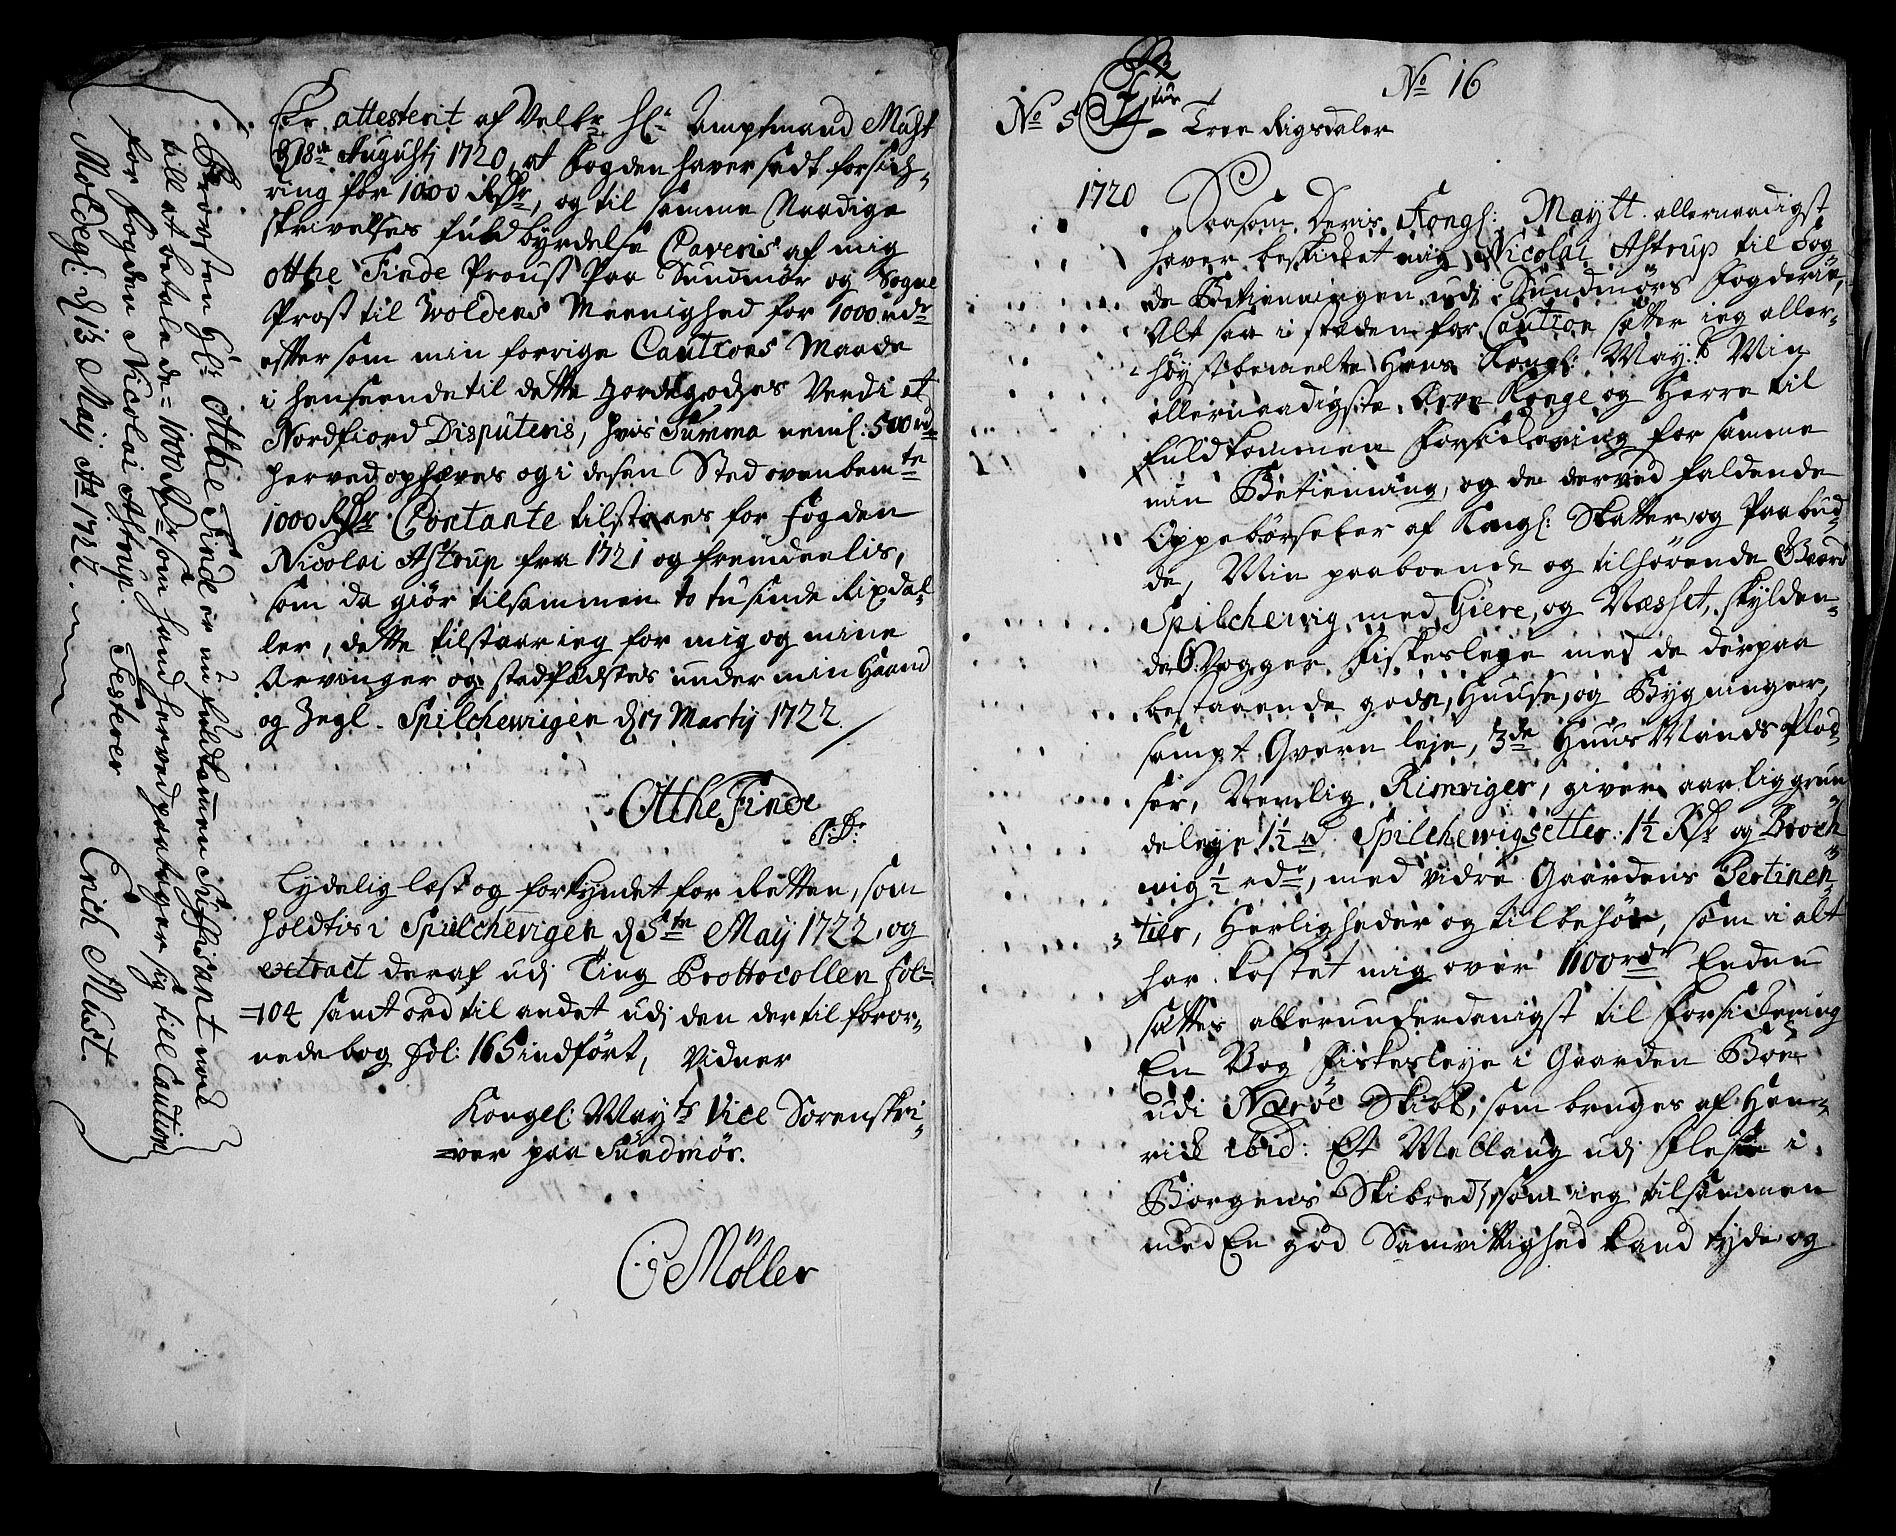 Er attesterit af Velbr Hr Amptmand Must
d 18de Augusti 1720, at fogden haver sadt forsich-
ring for 1000 Rdr, og til samme Naadige
skrivelses fuldbyrdelse Caveris af mig
Otthe Finde Proust Paa Sundmør og Sogne
Prest til Woldens Meenighed for 1000 rdr
efftersom min forrige Cautions Maade
i henseende til dette Jordegodses Verdi et
Nordfiord Disputeris, hvis Summa neml: 500 rdr
herved ophæves og i desen Sted ovenbemte
1000 Rdr Contante tilstaaes for fogden
Nicolai Astrup fra 1721 og fremdeelis,
som da giør tilsammen to tusinde Rixda-
ler, dette tilstaar ieg for mig og mine
Arvinger og stadfædstes under min Haand
og Zegl. Spilchewigen d 17 Martij 1722
Otthe Finde
Tydelig læst og forkyndet for Retten, som
holdtis i Spilchevigen d 5te Maij 1722, og
extract deraf udj Ting Prottocollen fol=
=104 samt ord til andet udj den dertil foror-
nede bog fol: 165 indført, Vidner
Kongel: Mayts Vice Sorenskri-
=ver paa Sundmør.
Møller
Provsten Hr Otthe Finde er en fuldkommen Suffisant mod
till at betale de = 1000 Rdr som hand herved paatager sig till Caution
for fogden Nicolai Astrup. Testerer
Moldegl: d 13 Maij Ao 1722.
Erich Must.
No 16
No 5
Tree Rigsdaler
1720
Saasom Deris Kongl: Maytt allernaadigst
haver beskicket mig Nicolai Astrup til Fog
de Betienningen udj Sundmørs Fogderie,
Alt saa i steden for Caution sætter ieg aller-
høystbemelte Hans Kongl: Mayt Min
allernaadigste Arve Konge og Herre til
fuldkommen forsickering for samme
min Betiening, og de derved faldende
Oppebørseler af Kongl: Skatter, og Paabud-
de, Min paaboende og tilhørende Gaard
Spilchewig med Giere, og Næsset, skylden-
de 6 Vogger fiskesleje med de derpaa
bestaaende gode, Huuse, og Bygninger,
sampt Qvern leje, 3de HuusMands Plad-
ser, Nemlig Rimviger, giver aarlig grun
deleye 1½ rd Spilchewigsetter 1½ Rdr og Broch
wig ½ rdr, med vidre Gaardens Pertinen-
tier, Herligheder og tilbehør, som i alt
har kostet mig over 1100 rdr Endnu
sættes allerunderdanigst til forsickering
En Vog fiskesleye i Gaarden Bøe
udi Nærøe Skibr, som bruges af Hen-
rich ibid: Et Mellaug udj Flesche i
Borgens Skibred, som ieg tilsammen
med En god Samvittighed kand tyde og